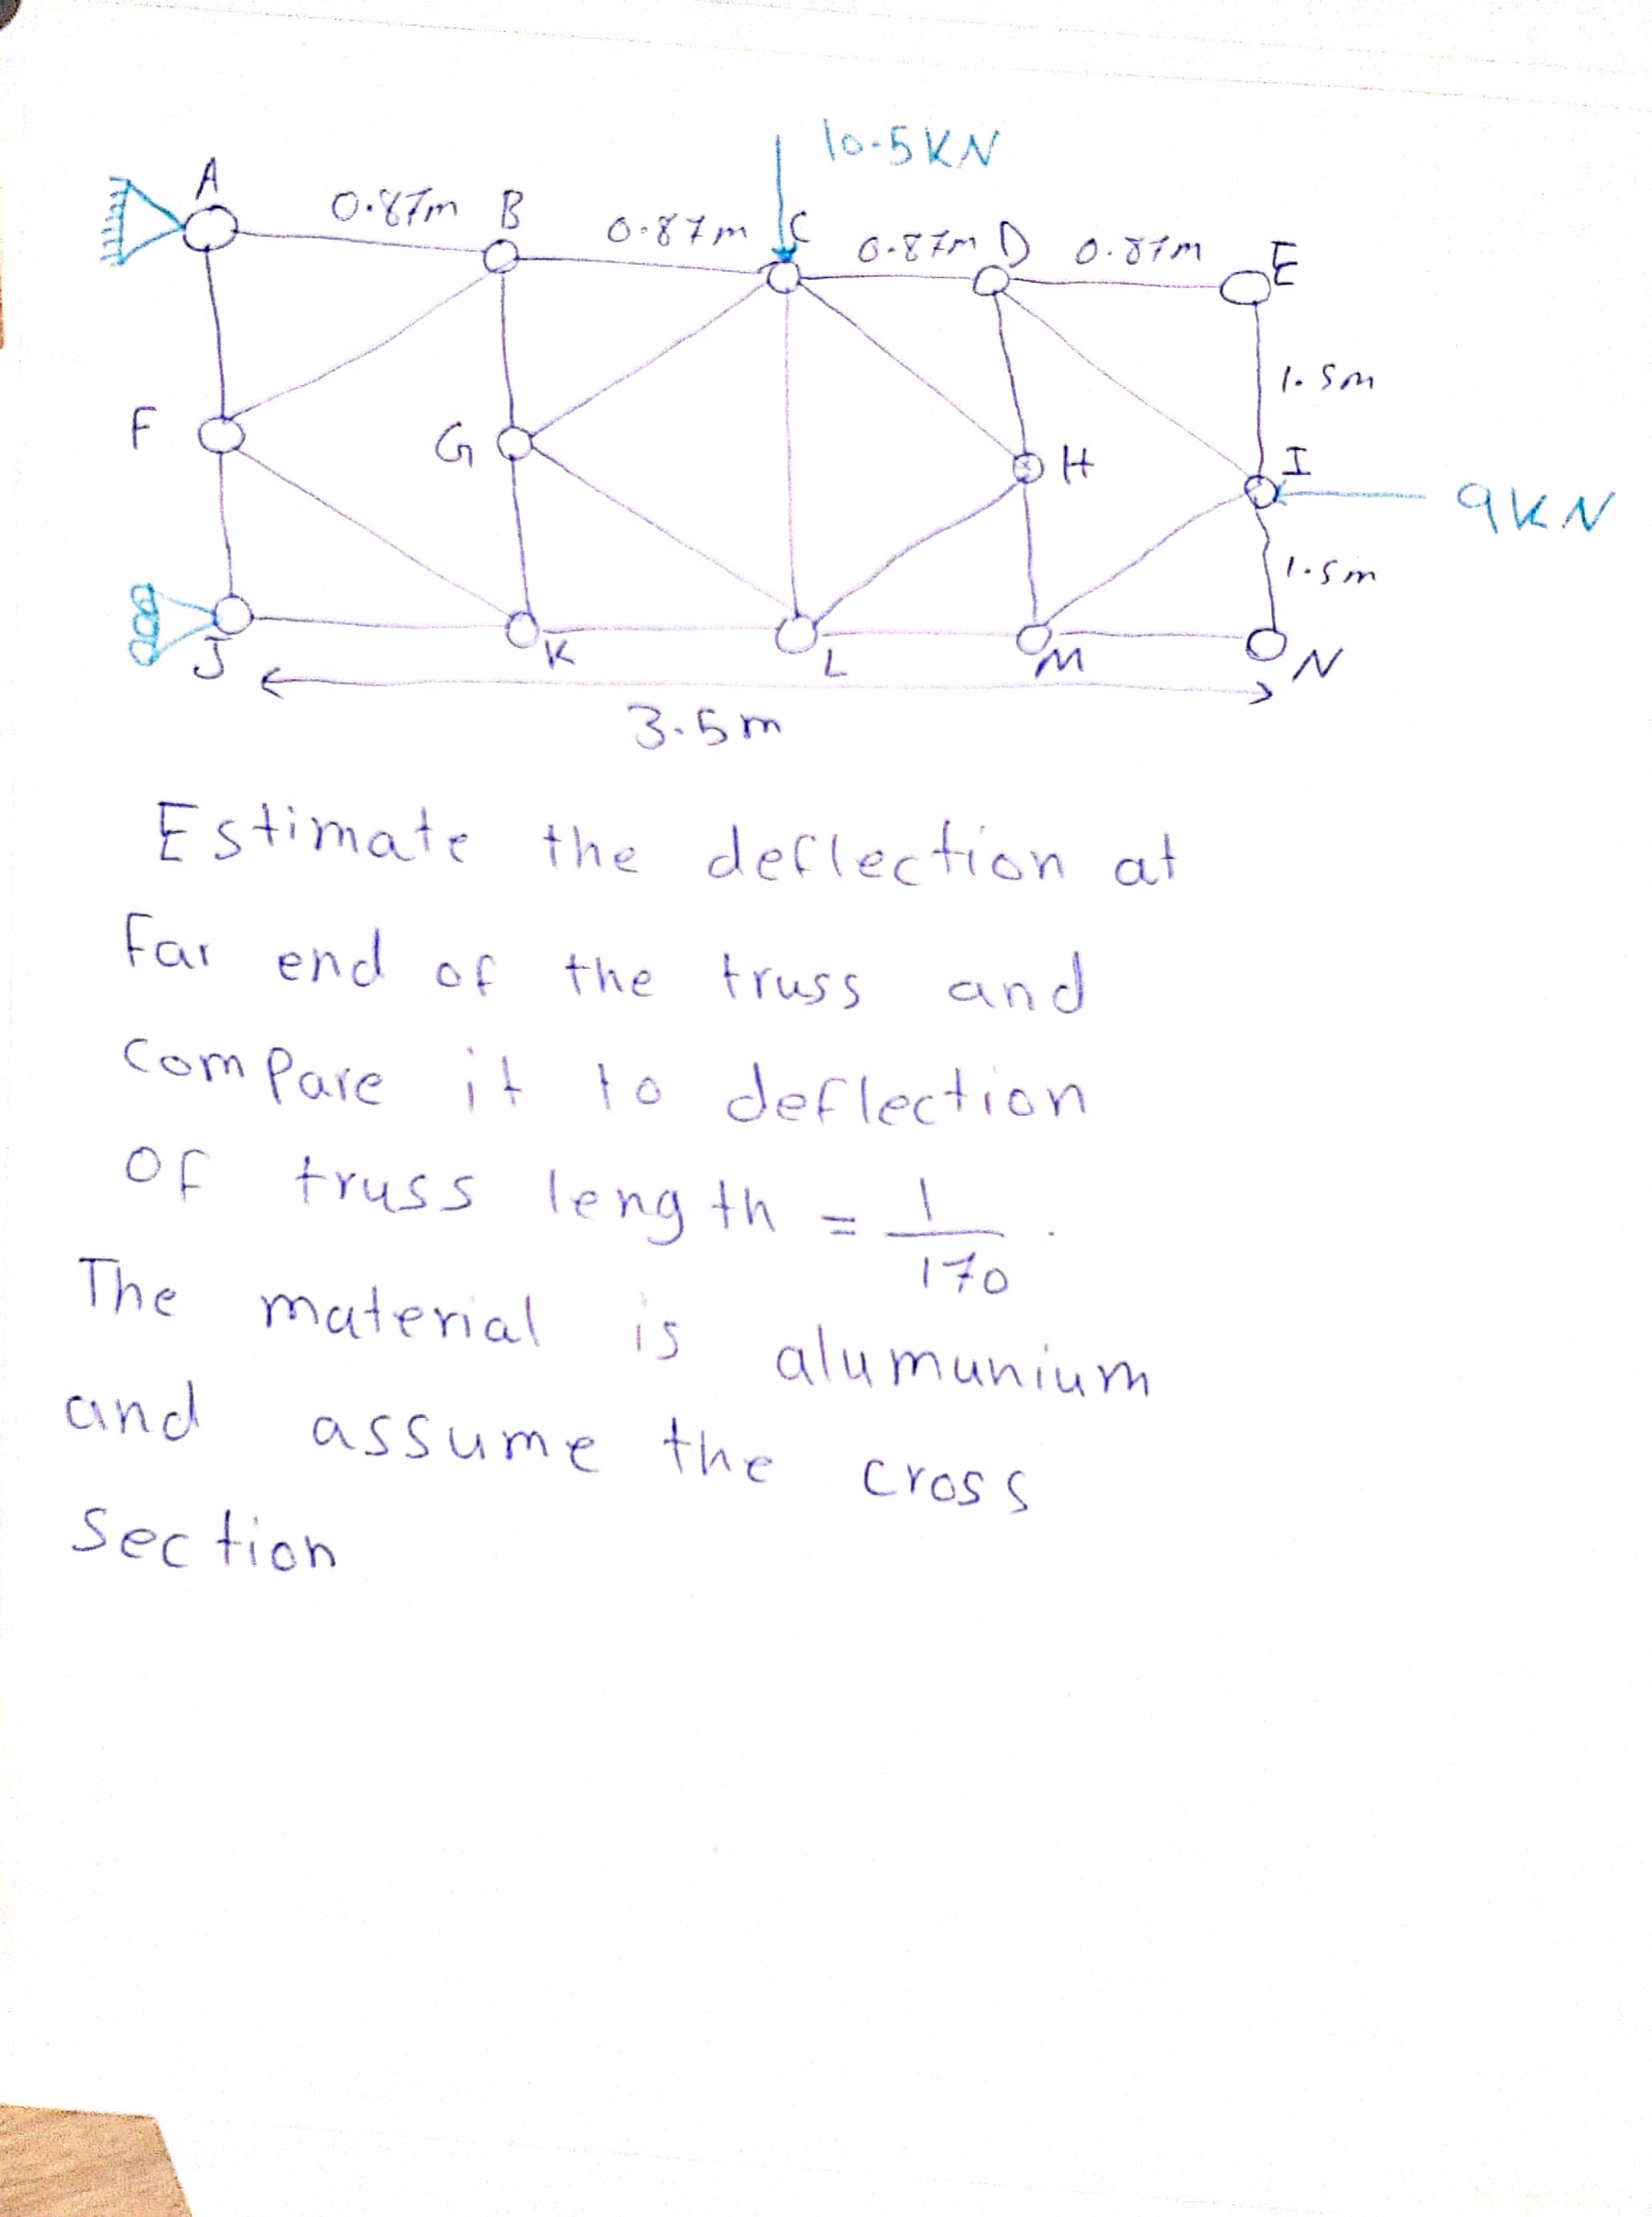 10.5KN
A
0.87m
B
0.87m
C
0.87m
D
0.87m
E
1.5m
F
G
H
I
9KN
1.5m
J
K
L
M
N
3.5m
Estimate the deflection at
Far end of the truss and
Compare it to deflection
Of truss length = 1/170.
The material is alumunium
and assume the cross
Section